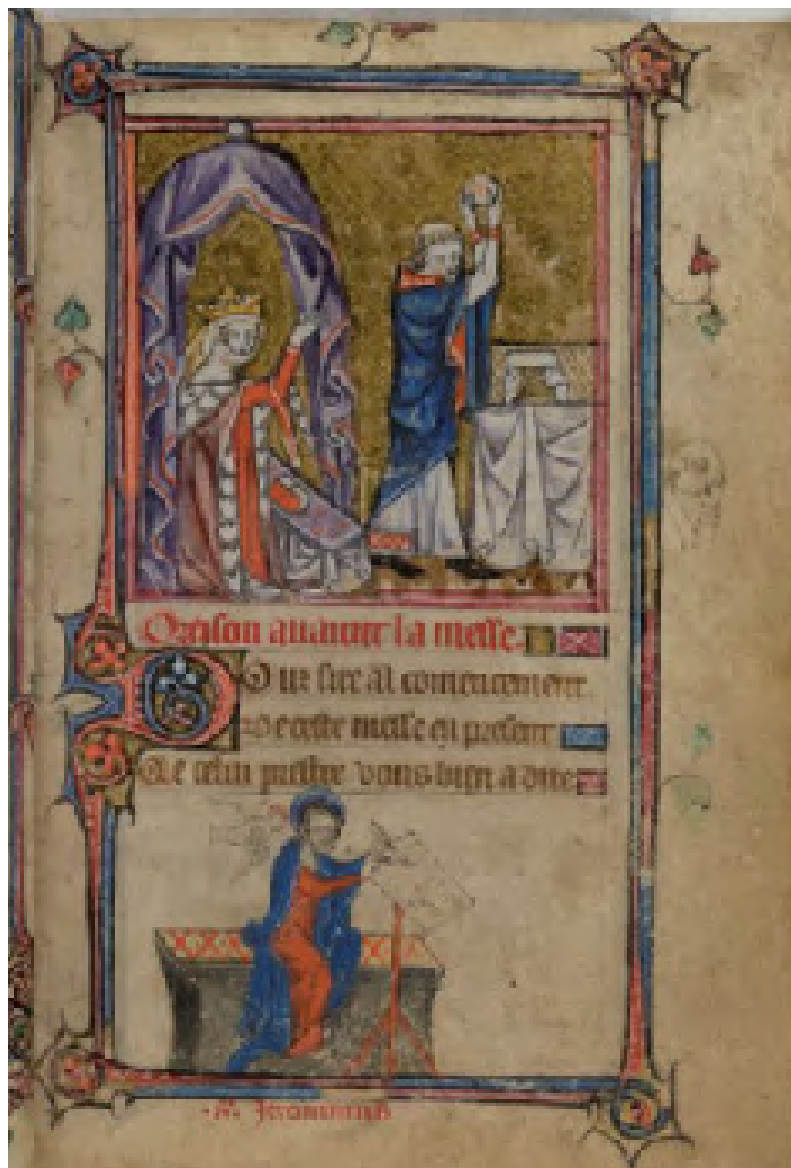 Oreison auaunt la messe.
Douz sire al comencement
De ceste messe en present
Qe celui prestre vous
Jeronimus